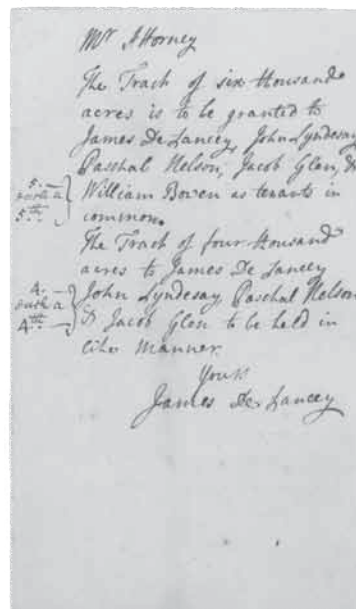 Mr Attorney
The Tract of six thousand
acres is to be granted to
James De Lancey, John Lyndesay
Paschal Nelson, Jacob Glen, &
William Bowen as tenants in
common.
5.
each a
5th.
The Tract of four thousand
acres to James De Lancey
John Lyndesay Paschal Nelson
& Jacob Glen to be held in
like Manner.
4.
each a
4th.
Yours
James De Lancey